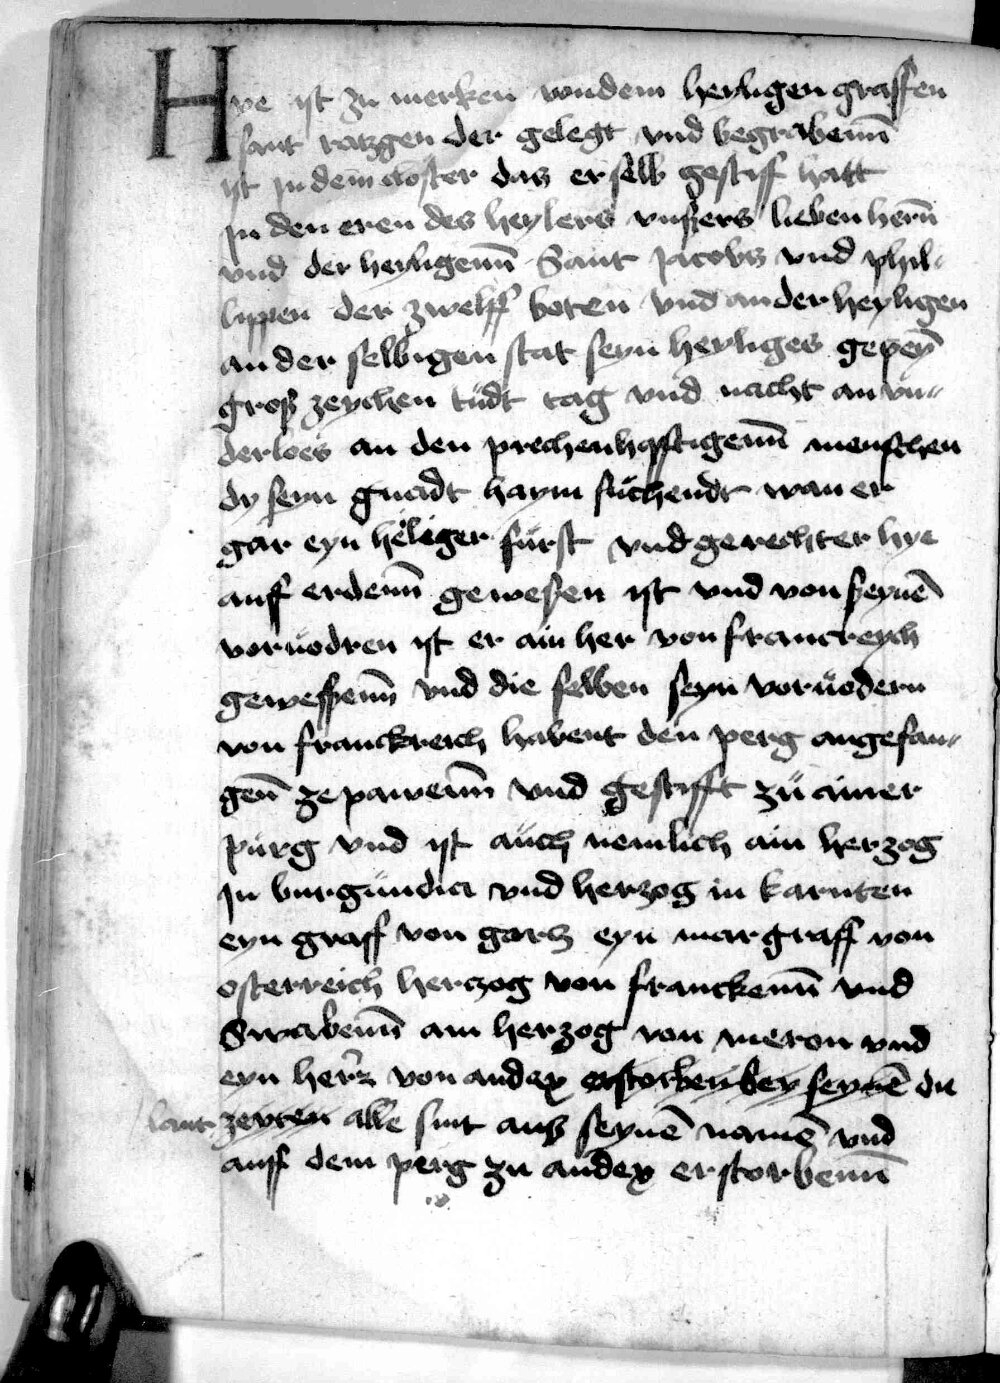 Hye ist zu merken vondem heyligen graffen
sant ratzgen der gelegt vnd begrabenn̄
ist jn dem closter das er selb gestifft hatt
jn den eren des heylers vnsers lieben hern̄
vnd der heyligenn̄ Sant jacobs vnd phil-
lippen der zwelff boten vnd an der heyligen
an der selbigen stat seyn heyliges gepeȳ
groß zeychen tüdt tag vnd nacht an vn-
derloes an den prechenhafftigenn̄ menschen
dy seyn gnadt haym süchendt wan er
gar eyn heliger fürst vnd gerechter hye
auff erdenn̄ gewesen ist vnd von seynē
voruodren ist er ain her von franckreych
gewessenn̄ vnd die selben seyn voruodern
von franckreich habent den perg angefan-
gen̄ ze pawenn̄ vnd gestifft zü ainer
pürg vnd ist auch nemlich ain herzog
jn burgundia vnd herzog in karnten
eyn graff von gorz eyn margraff von
osterreich herczog von franckenn̄ vnd
Swabenn̄ ain herzog von meron vnd
eyn herr von andex erstorben bey seynē die
lant zeyten alle sint aus seynē namē vnd
auff dem perg zu andex erstorbenn̄